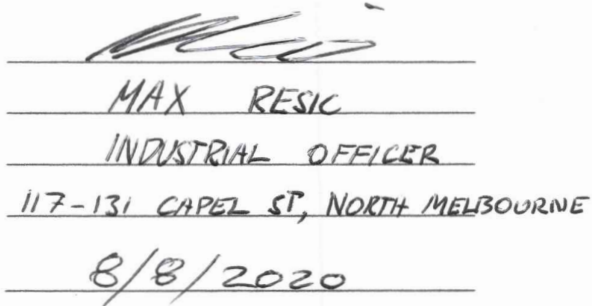 MAX RESIC
INDUSTRIAL OFFICER
117-131 CAPEL ST, NORTH MELBOURNE
8/8/2020